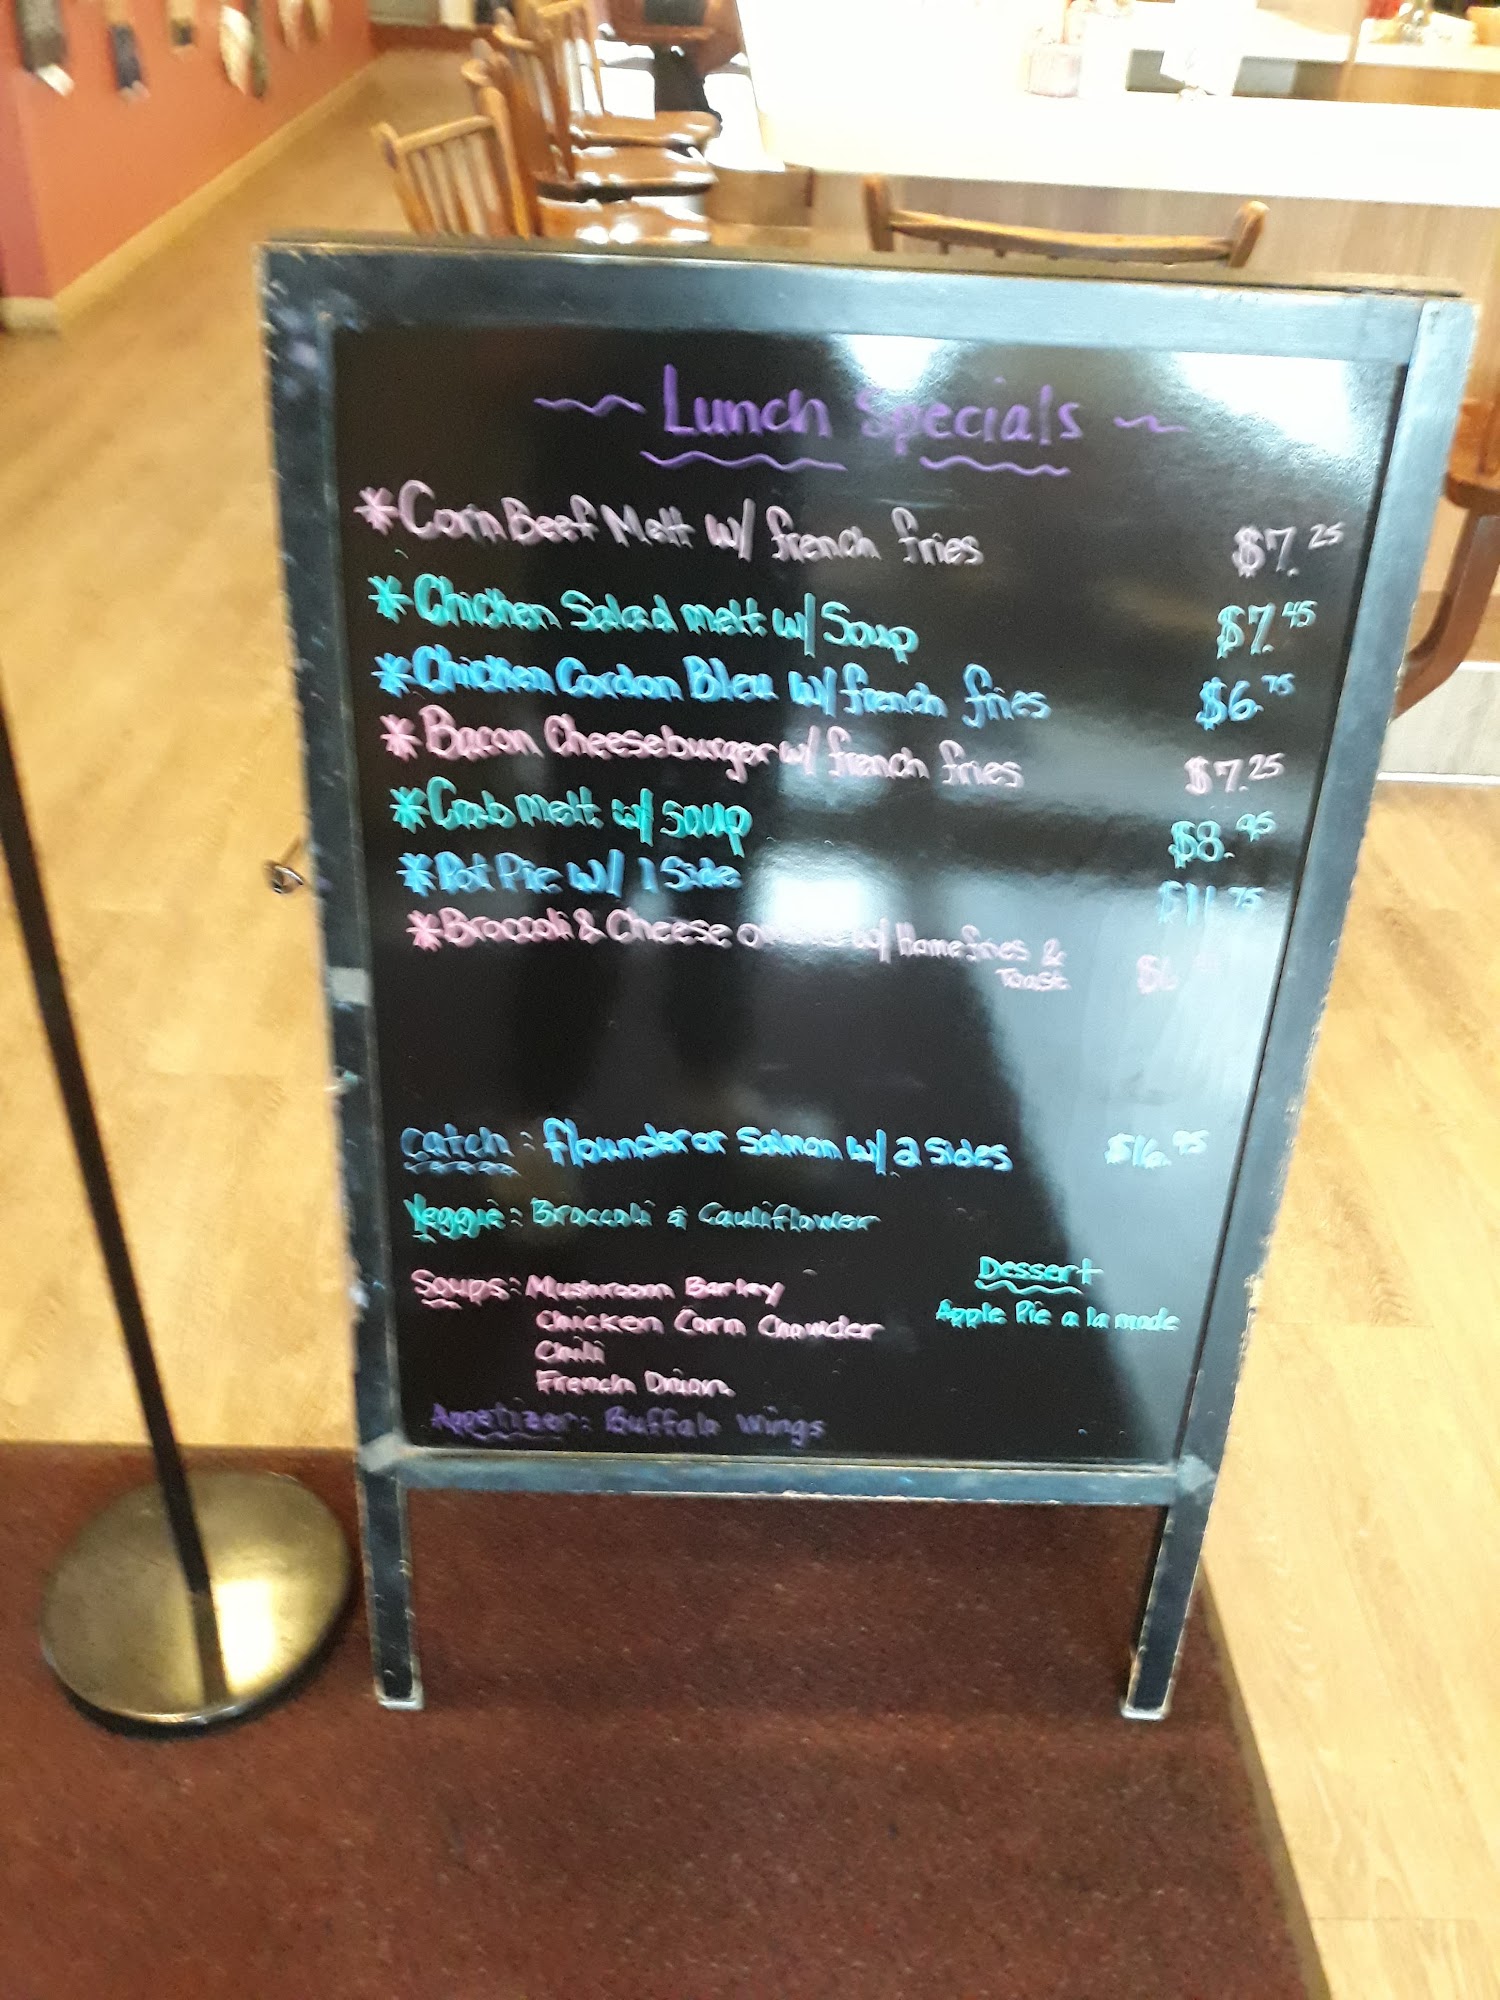 ~ Lunch Specials ~
*Corn Beef Melt w/ french fries $7.25
*Chicken Salad melt w/ Soup $7.45
*Chicken Cordon Bleu w/ french fries $6.75
*Bacon Cheeseburger w/ french fries $7.25
*Crab Melt w/ soup $8.95
*Pot Pie w/ 1 Side $11.75
*Broccoli & Cheese w/ Homefries &
Toast
catch: flounder or Salmon w/ 2 sides $16.95
Veggie: Broccoli & Cauliflower
Soups: Mushroom Barley
Chicken Corn Chowder
Chili
French Onion
Dessert
Apple Pie a la mode
Appetizer: Buffalo Wings